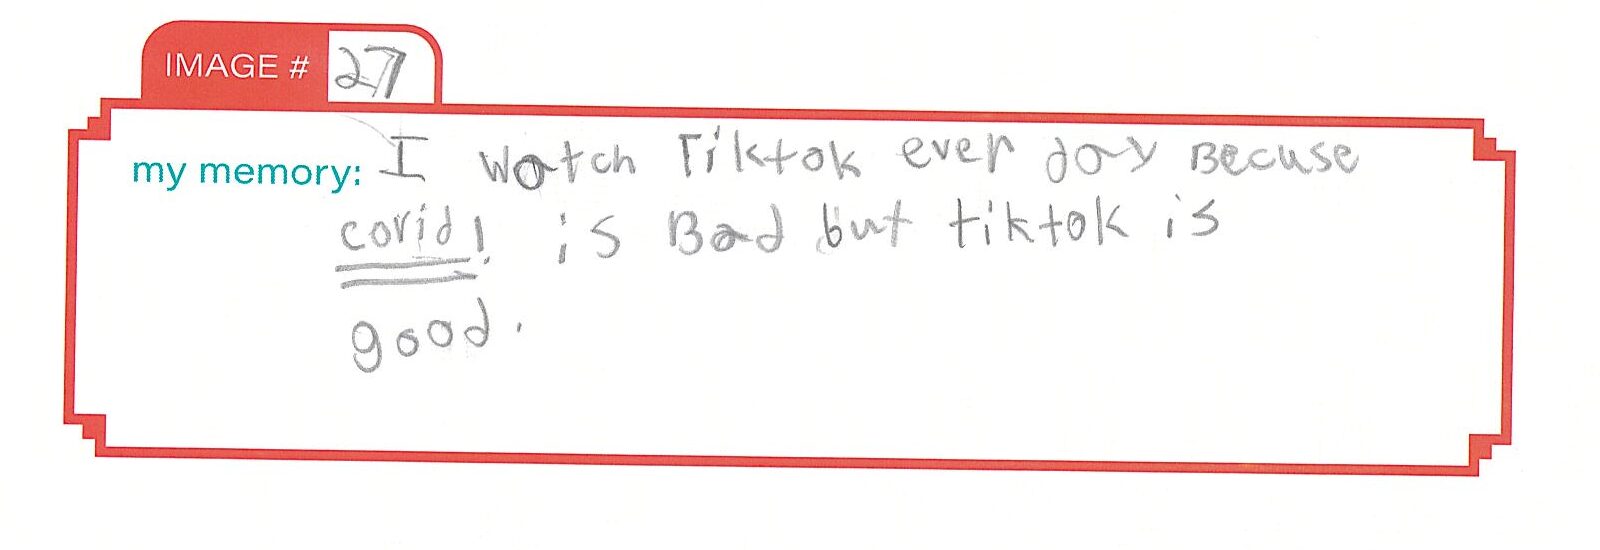 IMAGE # 27
my memory: I watch Tiktok ever day Becuse
covid! is Bad but tiktok is
good.